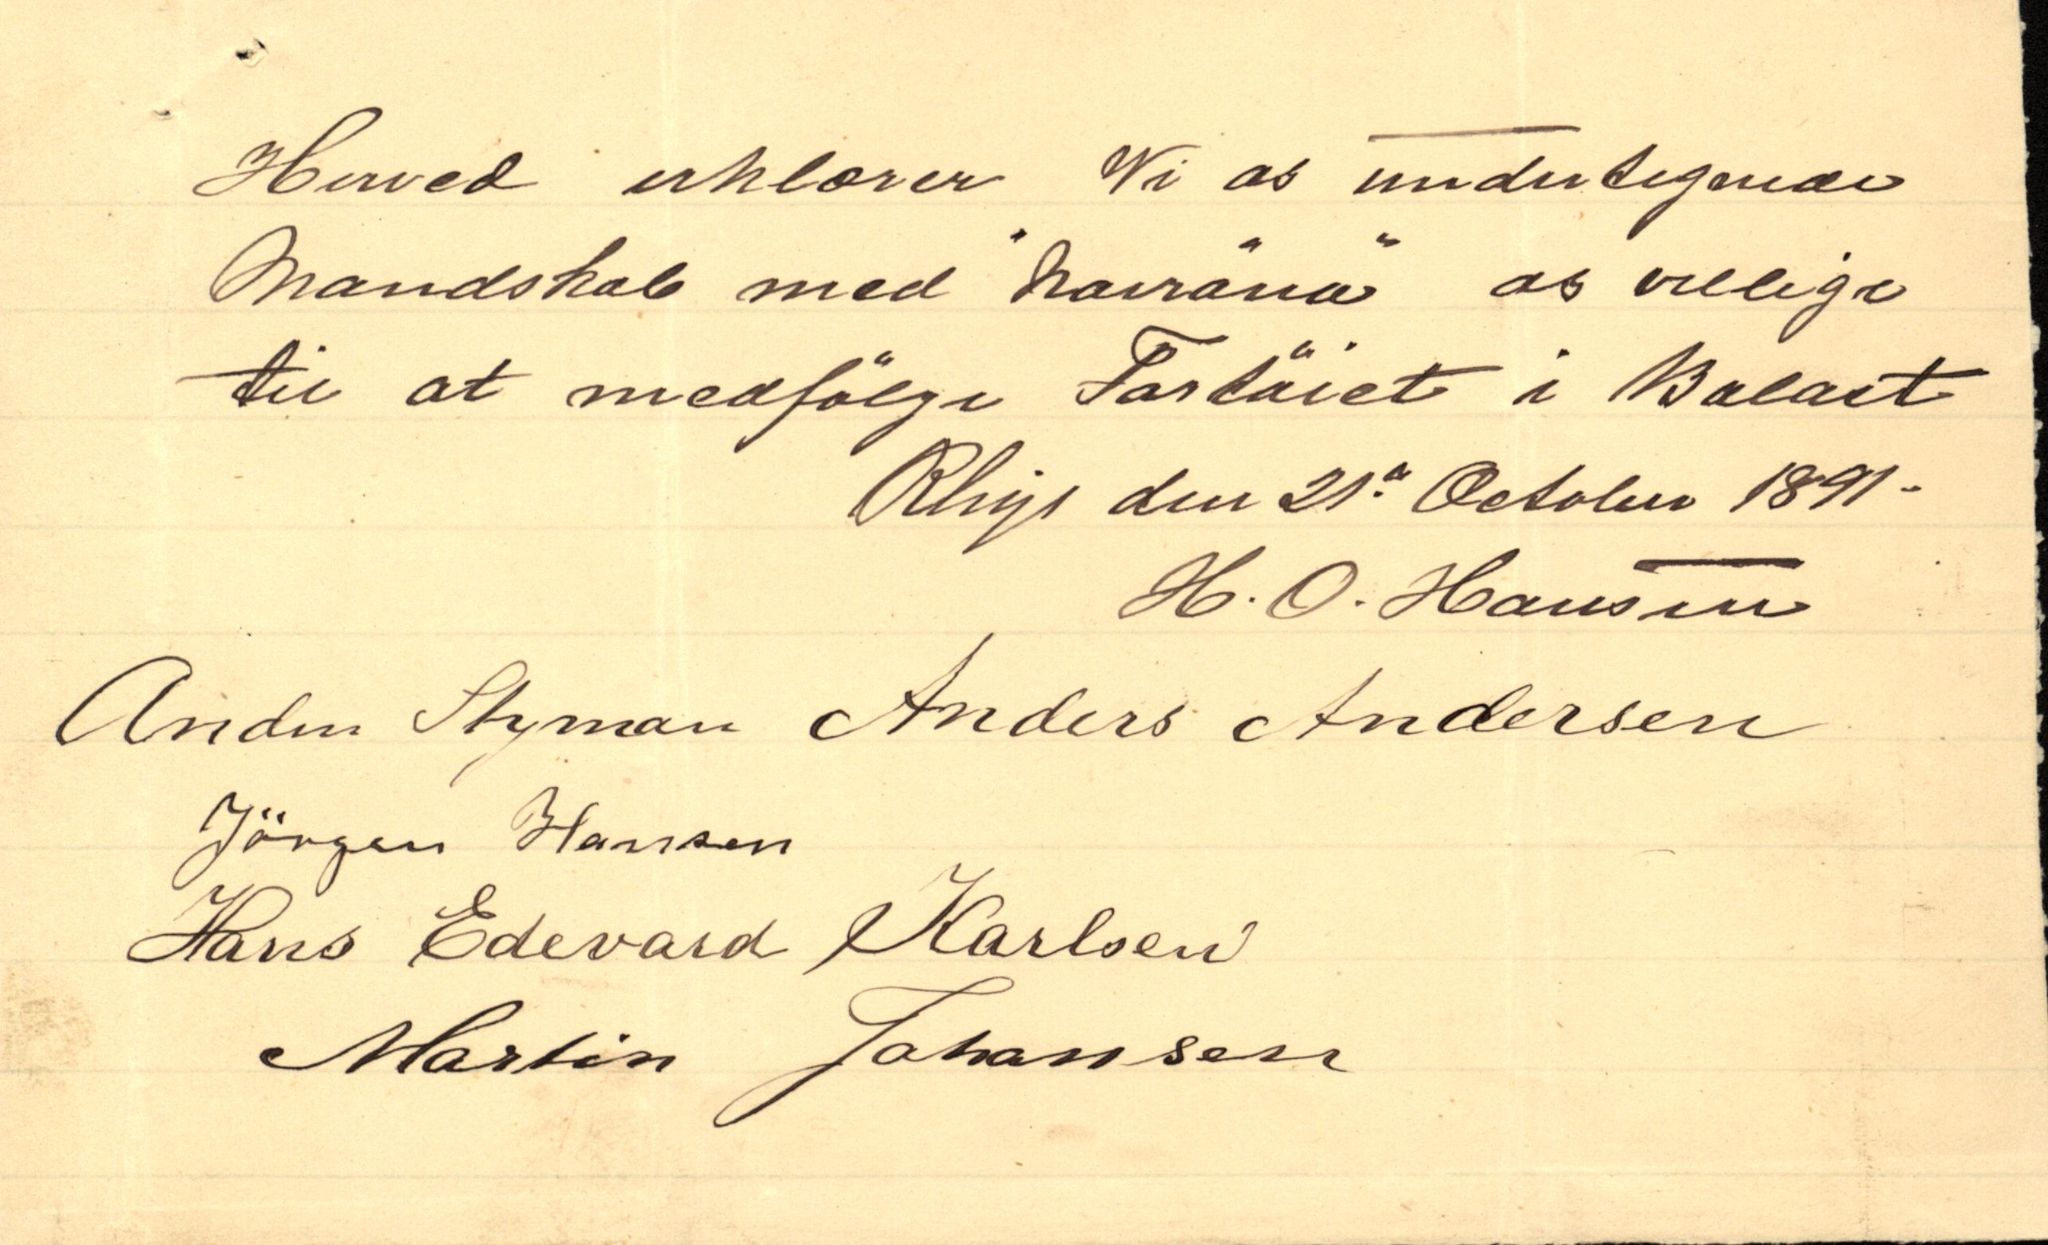 Herved erklærer Vi os undertegnede
Mandskab med "Navröna" os villige
til at medfölge Fartöiet i Balast
den 21" October 1891-
H. O. Hansen
Anden Styman Anders Andersen
Jörgen Hansen
Hans Edevard Karlsen
Martin Johansen